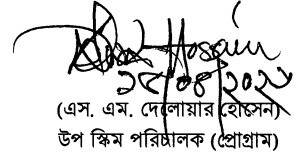 Hossain
১৫/০৪/২০২৬
(এস. এম. দেলোয়ার হোসেন)
উপ স্কিম পরিচালক (প্রোগ্রাম)